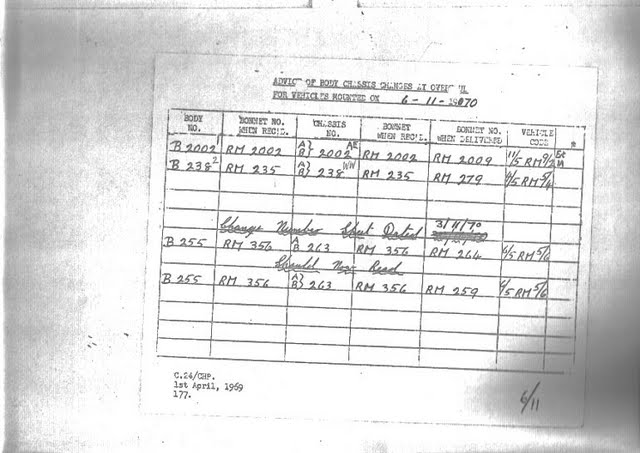 ADVICE OF BODY CHASSIS CHANGES AT OVERHAUL
FOR VEHICLES MOUNTED ON 6-11-1970
BODY NO. BONNET NO. WHEN REC'D. CHASSIS NO. BONNET WHEN REC'D. BONNET NO. WHEN DELIVERED VEHICLE CODE *
B2002 RM 2002 A} B} 2002 AE RM 2002 RM 2009 11/5 RM 9/2
B238 2 RM 235 A} B} 238 WW RM 235 RM 279 6/5 RM 5/4
Change Number Sheet Dated 3/11/70
B 255 RM 356 A B 263 RM 356 RM 264 6/5 RM 5/6
Should Now Read
B 255 RM 356 A} B} 263 RM 356 RM 259 6/5 RM 5/6
C.24/CHP.
1st April, 1969
177.
6/11